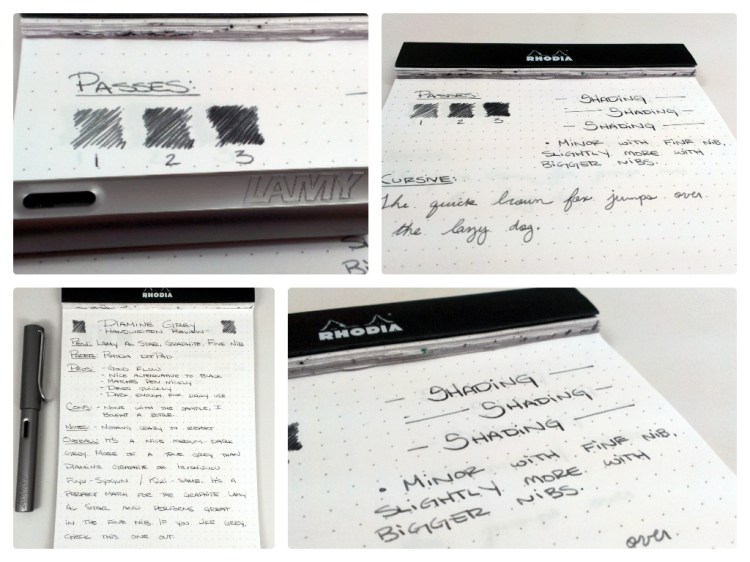 PASSES:
1 2 3
LAMY
SH
BI
RHODIA
PASSES:
1 2 3
- SHADING -
- SHADING -
- SHADING -
• MINOR WITH FINE NIB,
SLIGHTLY MORE WITH
BIGGER NIBS.
CURSIVE:
The quick brown fox jumps over
the lazy dog.
RHODIA
DIAMINE GREY
- HANDWRITTEN REVIEW -
PEN: LAMY AL STAR, GRAPHITE, FINE NIB
PAPER: RHODIA DOTPAD
PROS: - GOOD FLOW
- NICE ALTERNATIVE TO BLACK
- MATCHES PEN NICELY
- DRIES QUICKLY
- DARK ENOUGH FOR DAILY USE
CONS: - NONE WITH THE SAMPLE, I
BOUGHT A BOTTLE.
NOTES: - NOTHING CRAZY TO REPORT
OVERALL: IT'S A NICE MEDIUM-DARK
GREY. MORE OF A TRUE GREY THAN
DIAMINE GRAPHITE OR IROSHIZUKU
FUYU-SYOGUN / KIRI-SAME. IT'S A
PERFECT MATCH FOR THE GRAPHITE LAMY
AL STAR AND PERFORMS GREAT
IN THE FINE NIB. IF YOU LIKE GREY,
CHECK THIS ONE OUT.
RHODIA
- SHADING -
- SHADING -
- SHADING -
• MINOR WITH FINE NIB,
SLIGHTLY MORE WITH
BIGGER NIBS.
over